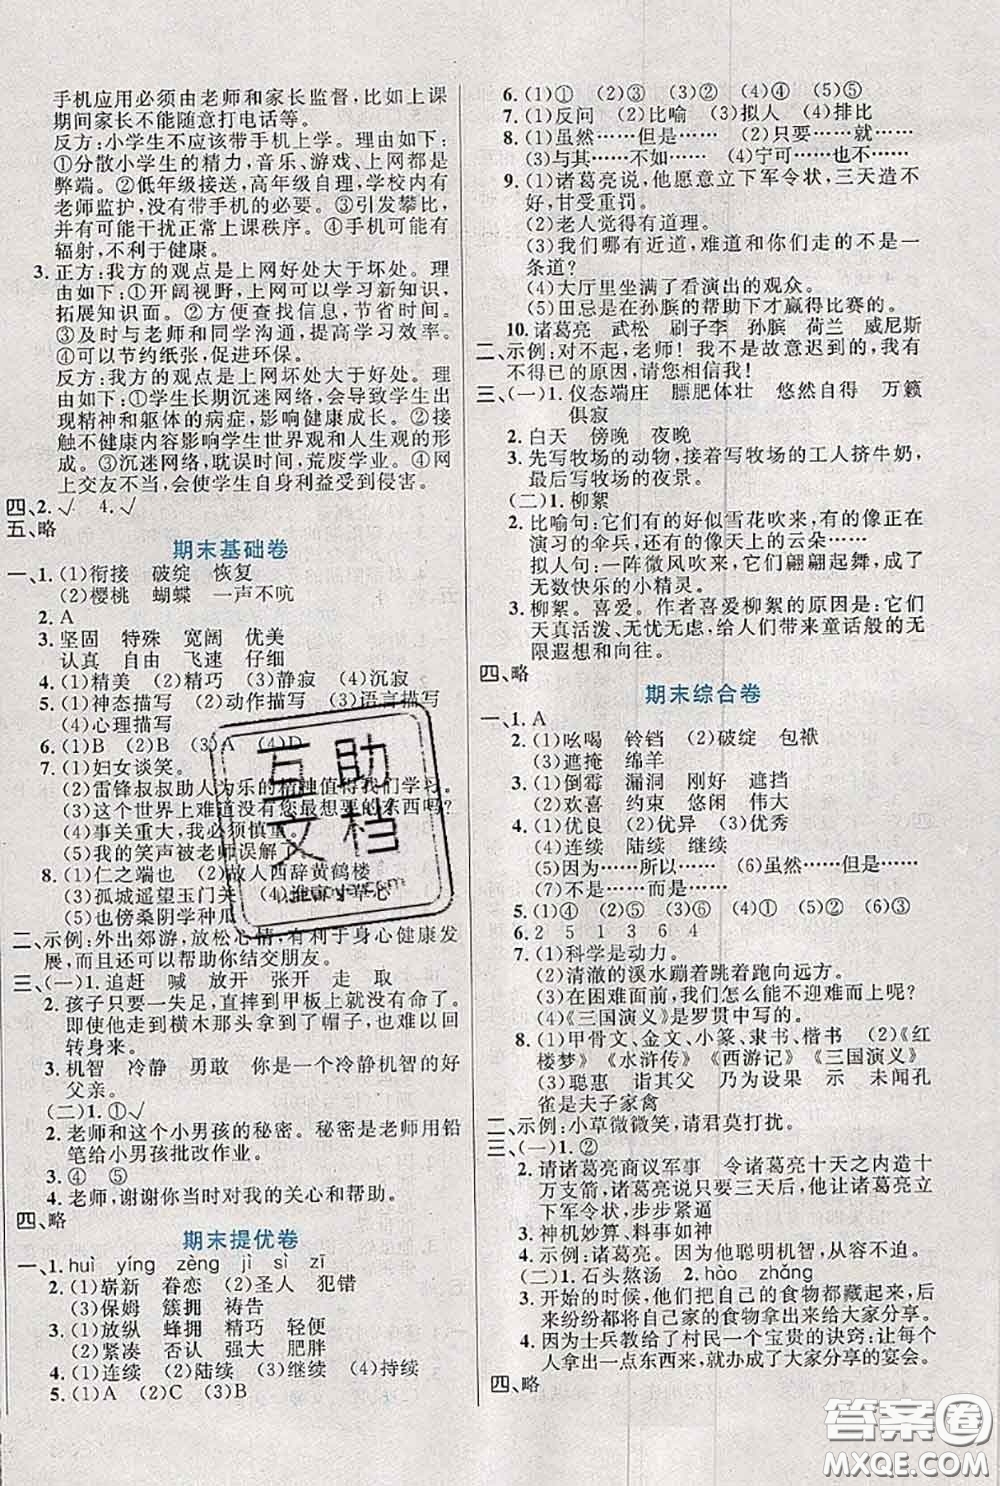 手机应用必须由老师和家长监督,比如上课
期间家长不能随意打电话等。
反方:小学生不应该带手机上学。理由如下:
①分散小学生的精力,音乐、游戏、上网都是
弊端。②低年级接送,高年级自理,学校内有
老师监护,没有带手机的必要。③引发攀比,
并有可能干扰正常上课秩序。④手机可能有
辐射,不利于健康。
3. 正方:我方的观点是上网好处大于坏处。理
由如下:①开阔视野,可以学习新知识,
拓展知识面。②方便查找信息,节省时间。
③及时与老师和同学沟通,提高学习效率。
④可以节约纸张,促进环保。
反方:我方的观点是上网坏处大于好处。理
由如下:①学生长期沉迷网络,会导致学生出
现精神和躯体的病症,影响健康成长。②接
触不健康内容影响学生世界观和人生观的形
成。③沉迷网络,耽误时间,荒废学业。④网
上交友不当,会使学生自身利益受到侵害。
四、2.√ 4.√
五、略
期末基础卷
一、1.(1)衔接 破绽 恢复
(2)樱桃 蝴蝶 一声不吭
2. A
3. 坚固 特殊 宽阔 优美
认真 自由 飞速 仔细
4. (1)精美 (2)精巧 (3)静寂 (4)沉寂
5. (1)神态描写 (2)动作描写 (3)语言描写
(4)心理描写
6. (1)B (2)B (3)A (4)D
7. (1)妇女谈笑。
(2)雷锋叔叔助人为乐的精神值得我们学习。
(3)这个世界上难道没有您最想要的东西吗?
(4)事关重大,我必须慎重。
(5)我的笑声被老师误解了。
8. (1)仁之端也 (2)故人西辞黄鹤楼
(3)孤城遥望玉门关 (4)谁言寸草心
(5)也傍桑阴学种瓜
二、示例:外出郊游,放松心情,有利于身心健康发
展,而且还可以帮助你结交朋友。
三、(一)1. 追赶 喊 放开 张开 走 取
2. 孩子只要一失足,直摔到甲板上就没有命了。
即使他走到横木那头拿到了帽子,也难以回
转身来。
3. 机智 冷静 勇敢 你是一个冷静机智的好
父亲。
(二)1. ①√
2. 老师和这个小男孩的秘密。秘密是老师用铅
笔给小男孩批改作业。
3. ④ ⑤
4. 老师,谢谢你当时对我的关心和帮助。
四、略
期末提优卷
一、1. huì yíng zèng jì sì zī
2. (1)崭新 眷恋 (2)圣人 犯错
(3)保姆 簇拥 祷告
3. (1)放纵 蜂拥 精巧 轻便
(2)紧凑 否认 强大 肥胖
4. (1)连续 (2)陆续 (3)继续 (4)持续
5. (1)A (2)C (3)B
6. (1)① (2)③ (3)② (4)④ (5)⑤
7. (1)反问 (2)比喻 (3)拟人 (4)排比
8. (1)虽然……但是…… (2)只要……就……
(3)与其……不如…… (4)宁可……也不……
9. (1)诸葛亮说,他愿意立下军令状,三天造不
好,甘受重罚。
(2)老人觉得有道理。
(3)我们哪有近道,难道和你们走的不是一
条道?
(4)大厅里坐满了看演出的观众。
(5)田忌是在孙膑的帮助下才赢得比赛的。
10. 诸葛亮 武松 刷子李 孙膑 荷兰 威尼斯
二、示例:对不起,老师!我不是故意迟到的,我有
不得已的原因,请您相信我!
三、(一)1. 仪态端庄 膘肥体壮 悠然自得 万籁
俱寂
2. 白天 傍晚 夜晚
3. 先写牧场的动物,接着写牧场的工人挤牛奶,
最后写牧场的夜景。
(二)1. 柳絮
2. 比喻句:它们有的好似雪花吹来,有的像正在
演习的伞兵,还有的像天上的云朵……
拟人句:一阵微风吹来,它们翩翩起舞,成了
无数快乐的小精灵。
3. 柳絮。喜爱。作者喜爱柳絮的原因是:它们
天真活泼、无忧无虑,给人们带来童话般的无
限遐想和向往。
四、略
期末综合卷
一、1. A
2. (1)吆喝 铃铛 (2)破绽 包袱
(3)遮掩 绵羊
3. (1)倒霉 漏洞 刚好 遮挡
(2)欢喜 约束 悠闲 伟大
4. (1)优良 (2)优异 (3)优秀
(4)连续 陆续 继续
(5)因为……所以…… (6)虽然……但是……
(7)不是……而是……
5. (1)④ (2)① (3)⑤ (4)③ (5)② (6)⑥
6. 2 5 1 3 6 4
7. (1)科学是动力。
(2)清澈的溪水蹦着跳着跑向远方。
(3)在困难面前,我们怎么能不迎难而上呢?
(4)《三国演义》是罗贯中写的。
8. (1)甲骨文、金文、小篆、隶书、楷书 (2)《红
楼梦》《水浒传》《西游记》《三国演义》
(3)聪惠 诣其父 乃为设果 示 未闻孔
雀是夫子家禽
二、示例:小草微微笑,请君莫打扰。
三、(一)1. ②
2. 请诸葛亮商议军事 令诸葛亮十天之内造十
万支箭,诸葛亮提出只要三天后,他让诸葛亮
立下军令状,步步紧逼
3. 神机妙算、料事如神
4. 示例:诸葛亮。因为他聪明机智、从容不迫。
(二)1. 石头熬汤 2. hào zhǎng
3. 开始的时候,他们把自己的食物都藏起来,后
来纷纷都将自己家的食物拿出来给大家分享。
4. 因为士兵教给了村民一个宝贵的诀窍:让每个
人拿出一点东西来,就变成了大家分享的宴会。
四、略
互助
文档
答案圈
MXQE.COM